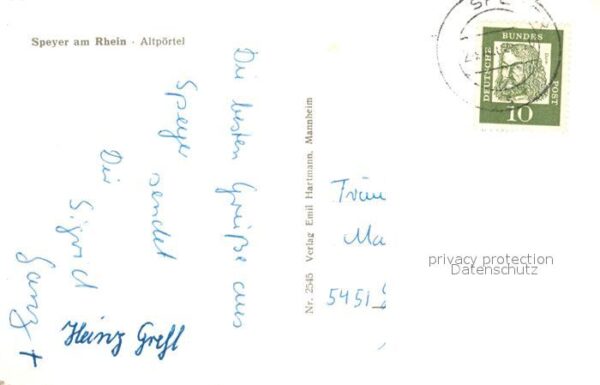 Speyer am Rhein · Altpörtel
Die besten Grüße aus
Speyer sendet
Dir Sigrid
Ganz +
Heinz
Nr. 2545 Verlag Emil Hartmann, Mannheim
SPE
DEUTSCHE BUNDES POST
10
5451
privacy protection
Datenschutz